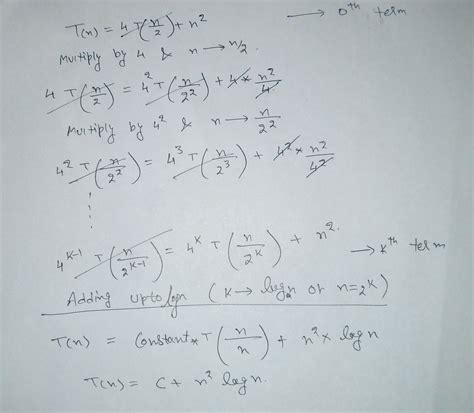 T(n) = 4 T(n/2) + n² → 0th term
Multiply by 4 & n → n/2.
4 T(n/2) = 4² T(n/2²) + 4 × n²/4
Multiply by 4² & n → n/2²
4² T(n/2²) = 4³ T(n/2³) + 4² × n²/4²
⋮
4^(k-1) T(n/2^(k-1)) = 4^k T(n/2^k) + n². → kth term
Adding upto logn (k → log₂n or n=2^k)
T(n) = Constant × T(n/n) + n² × logn
T(n) = C + n² logn.